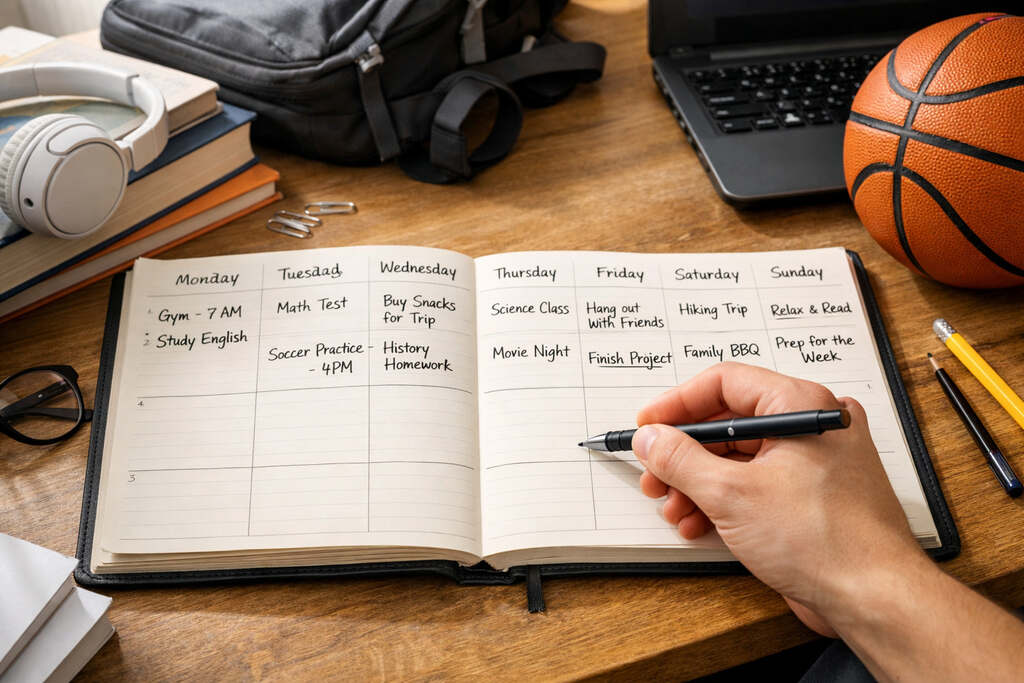 Monday Tuesdad Wednesday Thursday Friday Saturday Sunday
1. Gym - 7 AM
2 Study English
Math Test
Soccer Practice -
- 4PM
Buy Snacks
for Trip
History
Homework
Science Class
Movie Night
Hang out
With Friends
Finish Project
Hiking Trip
Family BBQ
Relax & Read
Prep for the
Week
4.
3
1.